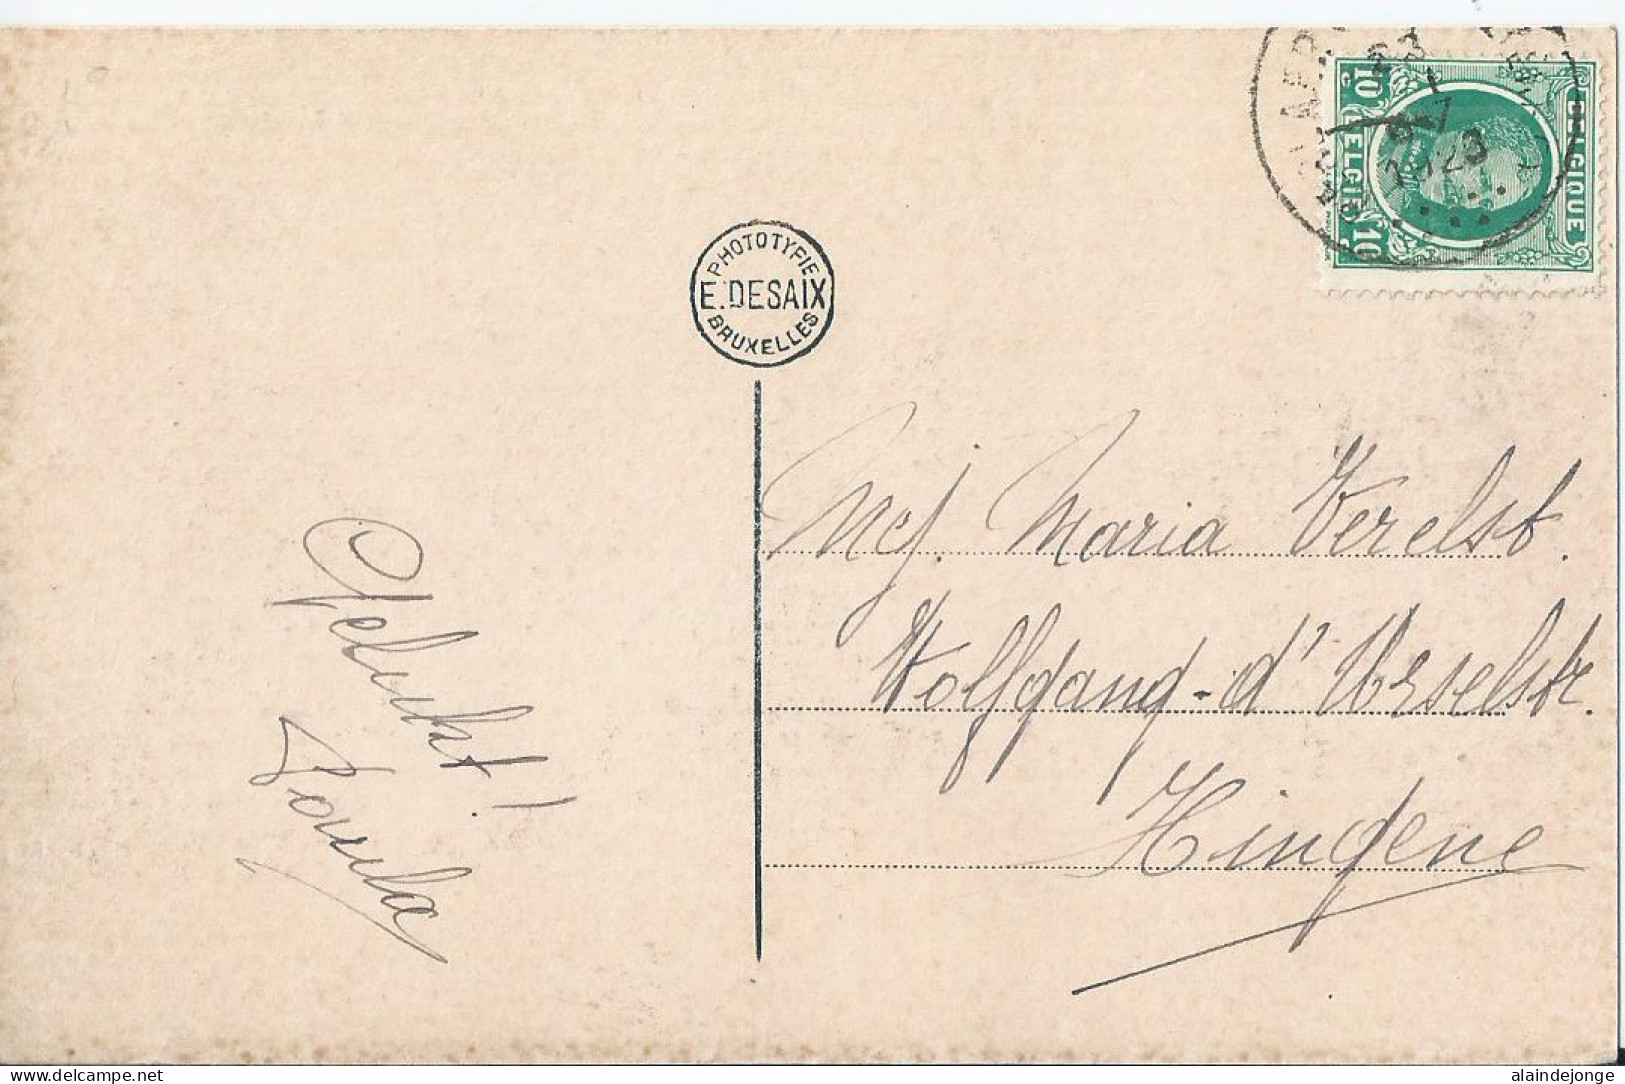 PHOTOTYPIE
E. DESAIX
BRUXELLES
BELGIQUE
10
BELGIE
10
1923
Geluk!
Mej. Maria Verelst.
Wolfgang-d'Urselstr.
Hingene
delcampe.net
alaindejonge